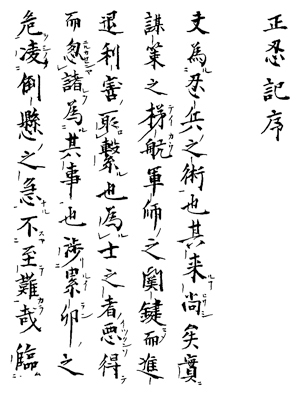 正忍記序
夫為忍兵之術也其来尚矣實
謀策之梯航軍師之関鍵而進
退利害所繋也為士之者悪得
而忽諸為其事也渉累卵之
危凌倒懸之急不至難哉臨